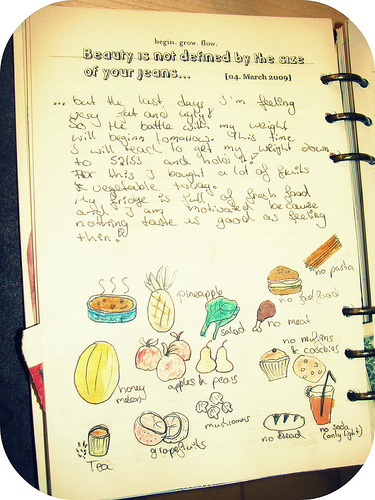 begin. grow. flow.
Beauty is not defined by the size
of your jeans...
[04. March 2009]
... but the last days I'm feeling
very fat and ugly!
So, the battle with my weight
will begin tomorrow. This time
I will reach to get my weight down
to 52/53 and hold it!
For this I bought a lot of fruits
& vegetable today.
My fridge is full of fresh food
and I am motivated because
nothing taste as good as feeling
thin.
no pasta
pineapple
no fast food
salad
no meat
no muffins
& coockies
honey
melon
apples & pears
mushrooms
no bread
no soda
(only light)
grapefruits
Tea